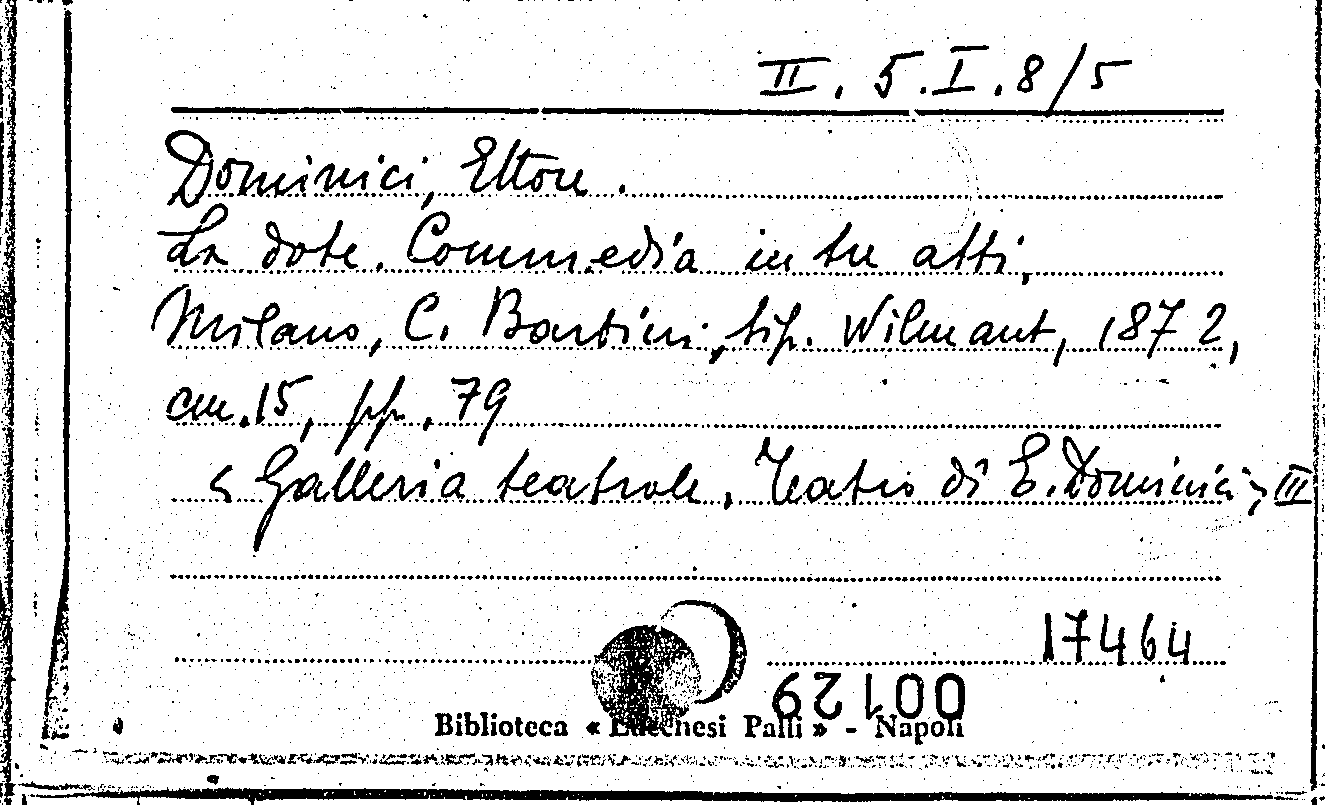 II. 5.I.8/5
Dominici, Ettore.
La dote. Commedia in tre atti,
Milano, C. Barbini, tip. Wilmant, 1872,
cm.15, pp. 79
< Galleria teatrale, Teatro di E. Dominici, III
17464
00129
Biblioteca « Lucchesi Palli » - Napoli